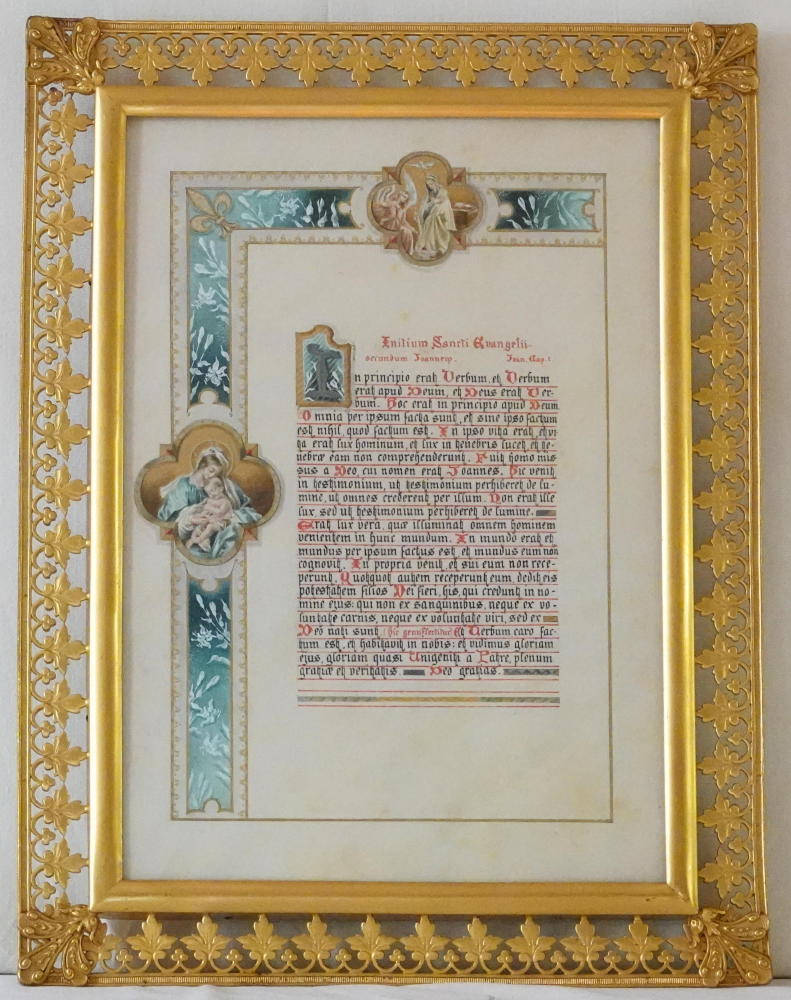 Initium Sancti Evangelii
secundum Joannem. Joan. Cap. 1
In principio erat Verbum, et Verbum
erat apud Deum, et Deus erat Ver-
bum. Hoc erat in principio apud Deum.
Omnia per ipsum facta sunt, et sine ipso factum
est nihil, quod factum est. In ipso vita erat, et vi-
ta erat lux hominum, et lux in tenebris lucet, et te-
nebræ eam non comprehenderunt. Fuit homo mis-
sus a Deo, cui nomen erat Joannes. Hic venit
in testimonium, ut testimonium perhiberet de lu-
mine, ut omnes crederent per illum. Non erat ille
lux, sed ut testimonium perhiberet de lumine.
Erat lux vera, quæ illuminat omnem hominem
venientem in hunc mundum. In mundo erat et
mundus per ipsum factus est, et mundus eum non
cognovit. In propria venit, et sui eum non rece-
perunt. Quotquot autem receperunt eum, dedit eis
potestatem filios Dei fieri, his, qui credunt in no-
mine ejus: qui non ex sanguinibus, neque ex vo-
luntate carnis, neque ex voluntate viri, sed ex
Deo nati sunt. (hic genuflectitur) Et Verbum caro fac-
tum est, et habitavit in nobis: et vidimus gloriam
ejus, gloriam quasi Unigeniti a Patre, plenum
gratiæ et veritatis. Deo gratias.